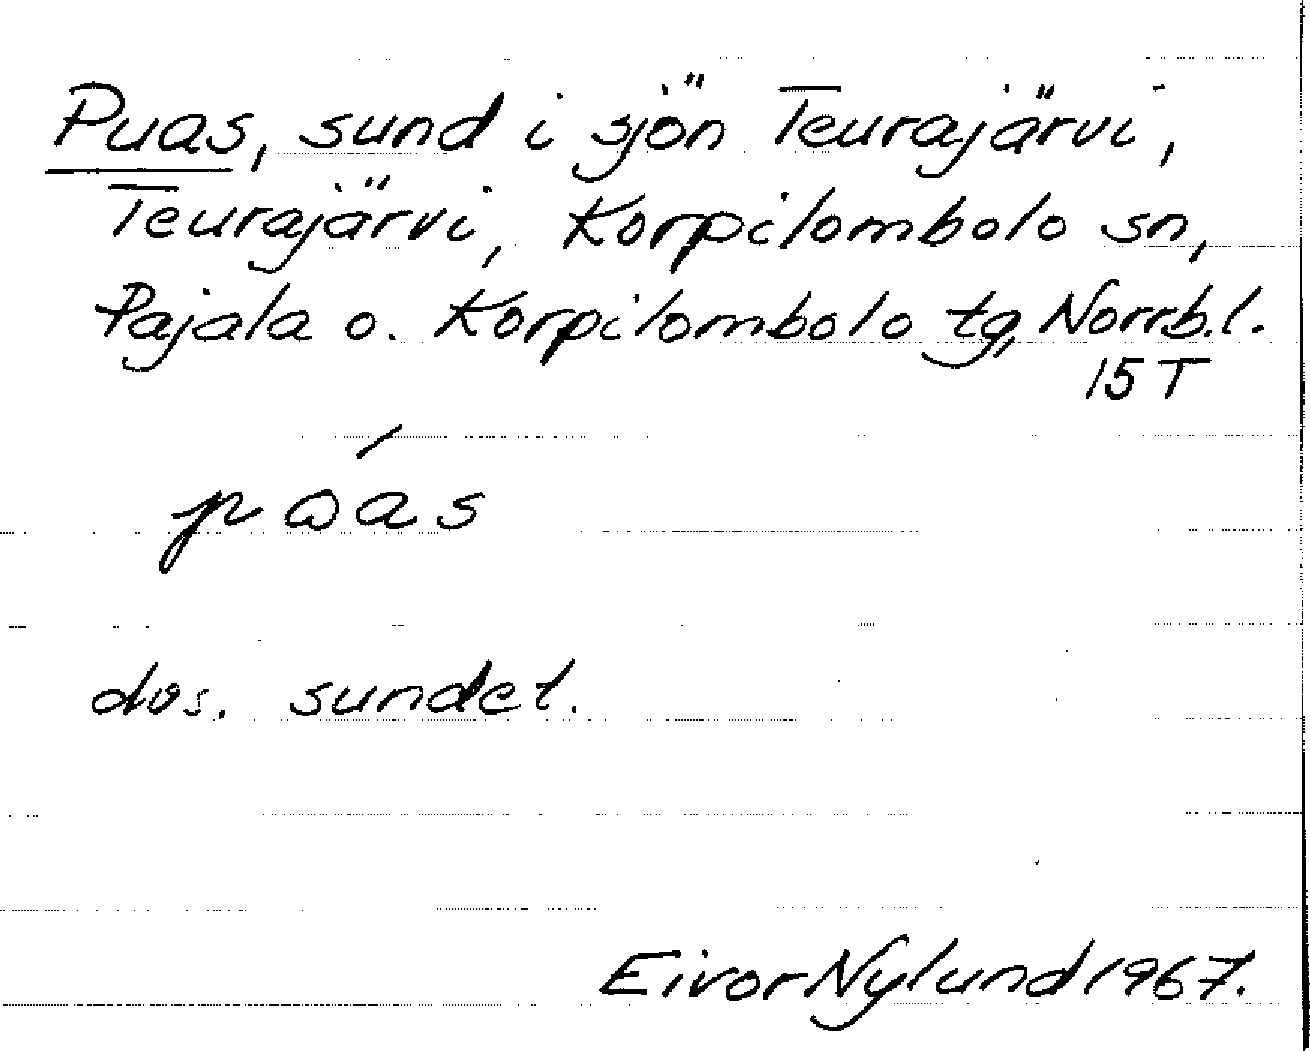 Puas, sund i sjön Teurajärvi,
Teurajärvi, Korpilombolo sn,
Pajala o. Korpilombolo tg, Norrb.l.
15 T
pωás
dvs. sundet.
Eivor Nylund 1967.